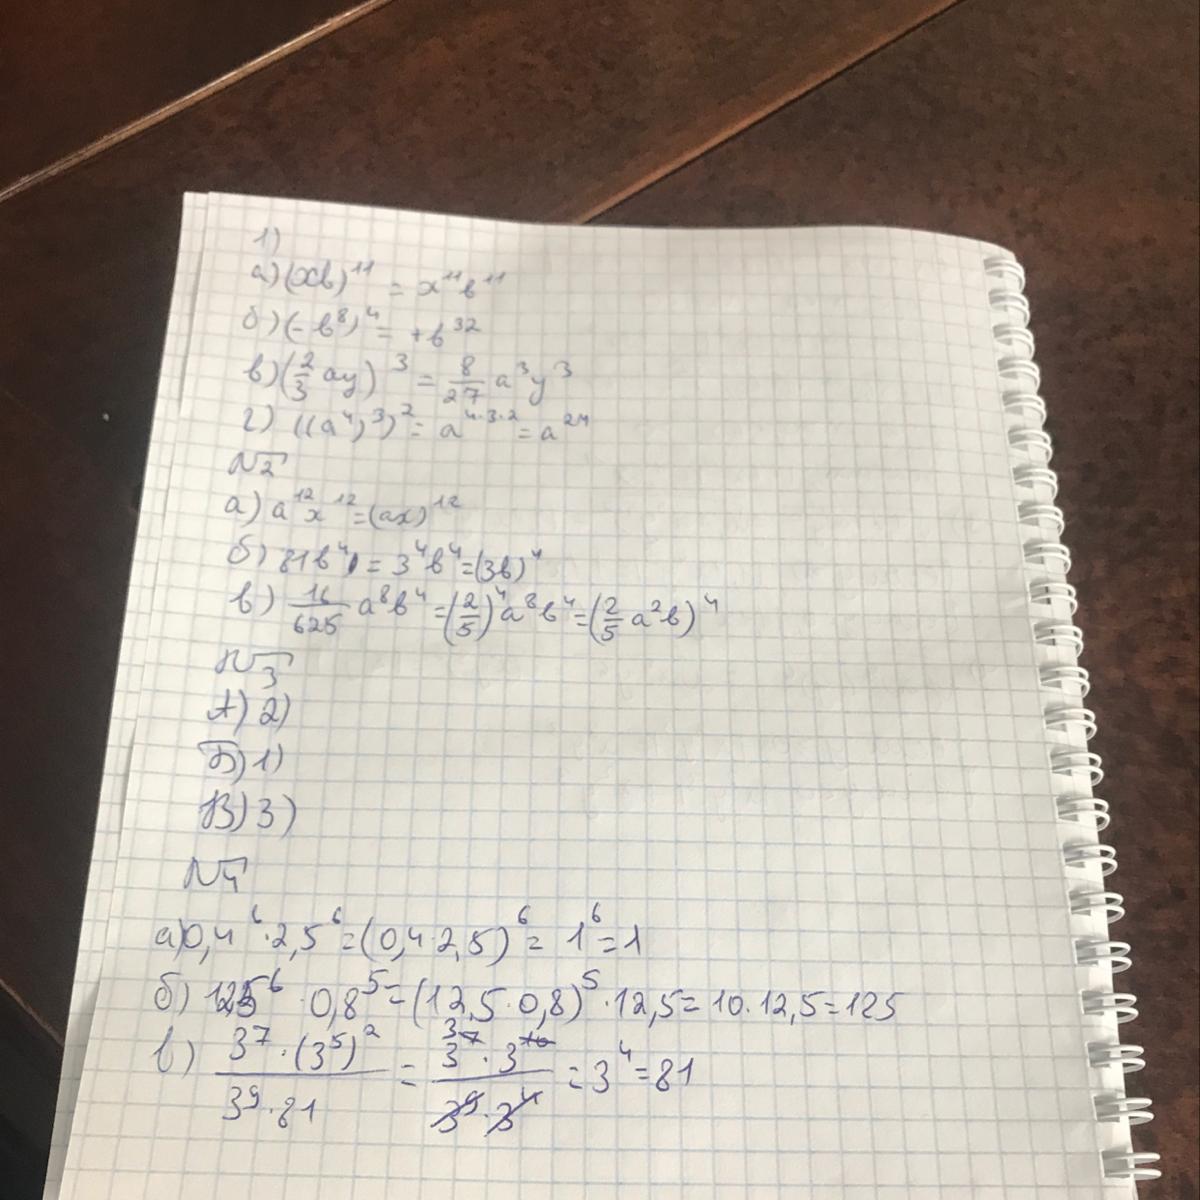 1)
а) (xb)¹¹ = x¹¹b¹¹
б) (-b⁸)⁴ = +b³²
в) (2/3 ay)³ = 8/27 a³y³
г) ((a⁴)³)² = a⁴·³·² = a²⁴
№2
а) a¹²x¹² = (ax)¹²
б) 81b⁴ = 3⁴b⁴ = (3b)⁴
в) 16/625 a⁸b⁴ = (2/5)⁴a⁸b⁴ = (2/5 a²b)⁴
№3
А) 2)
Б) 1)
В) 3)
№4
а) 0,4⁶ · 2,5⁶ = (0,4·2,5)⁶ = 1⁶ = 1
б) 12,5⁶ · 0,8⁵ = (12,5·0,8)⁵ · 12,5 = 10·12,5 = 125
в) 3⁷·(3⁵)² / 3⁹·81 = 3⁷·3¹⁰ / 3⁹·3⁴ = 3⁴ = 81